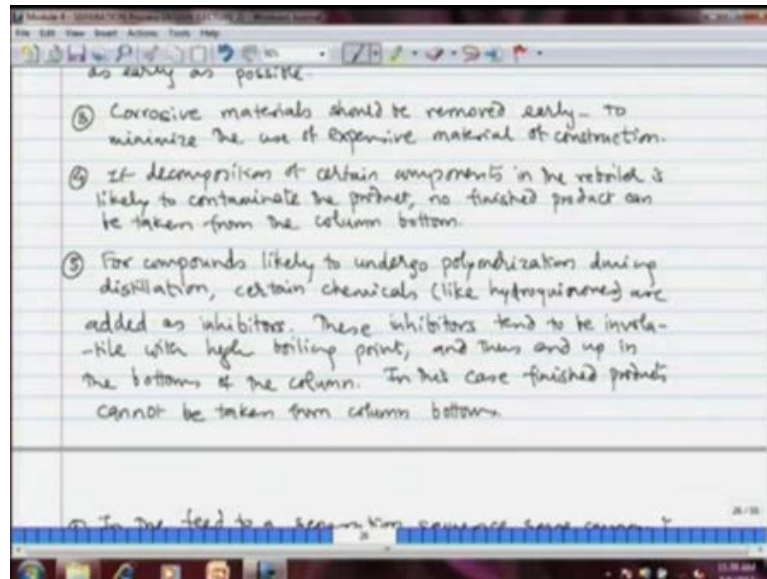 Module 4 - SEPARATION Process DESIGN (LECTURE 2) - Windows Journal
File Edit View Insert Actions Tools Help
as early as possible.
③ Corrosive materials should be removed early - To
minimize the use of expensive material of construction.
④ If decomposition of certain components in the reboiler is
likely to contaminate the product, no finished product can
be taken from the column bottom.
⑤ For compounds likely to undergo polymerization during
distillation, certain chemicals (like hydroquinones) are
added as inhibitors. These inhibitors tend to be invola-
-tile with high boiling point, and thus end up in
the bottoms of the column. In this case finished products
cannot be taken from column bottoms.
In the feed to a separation sequence some
26
11:39 AM